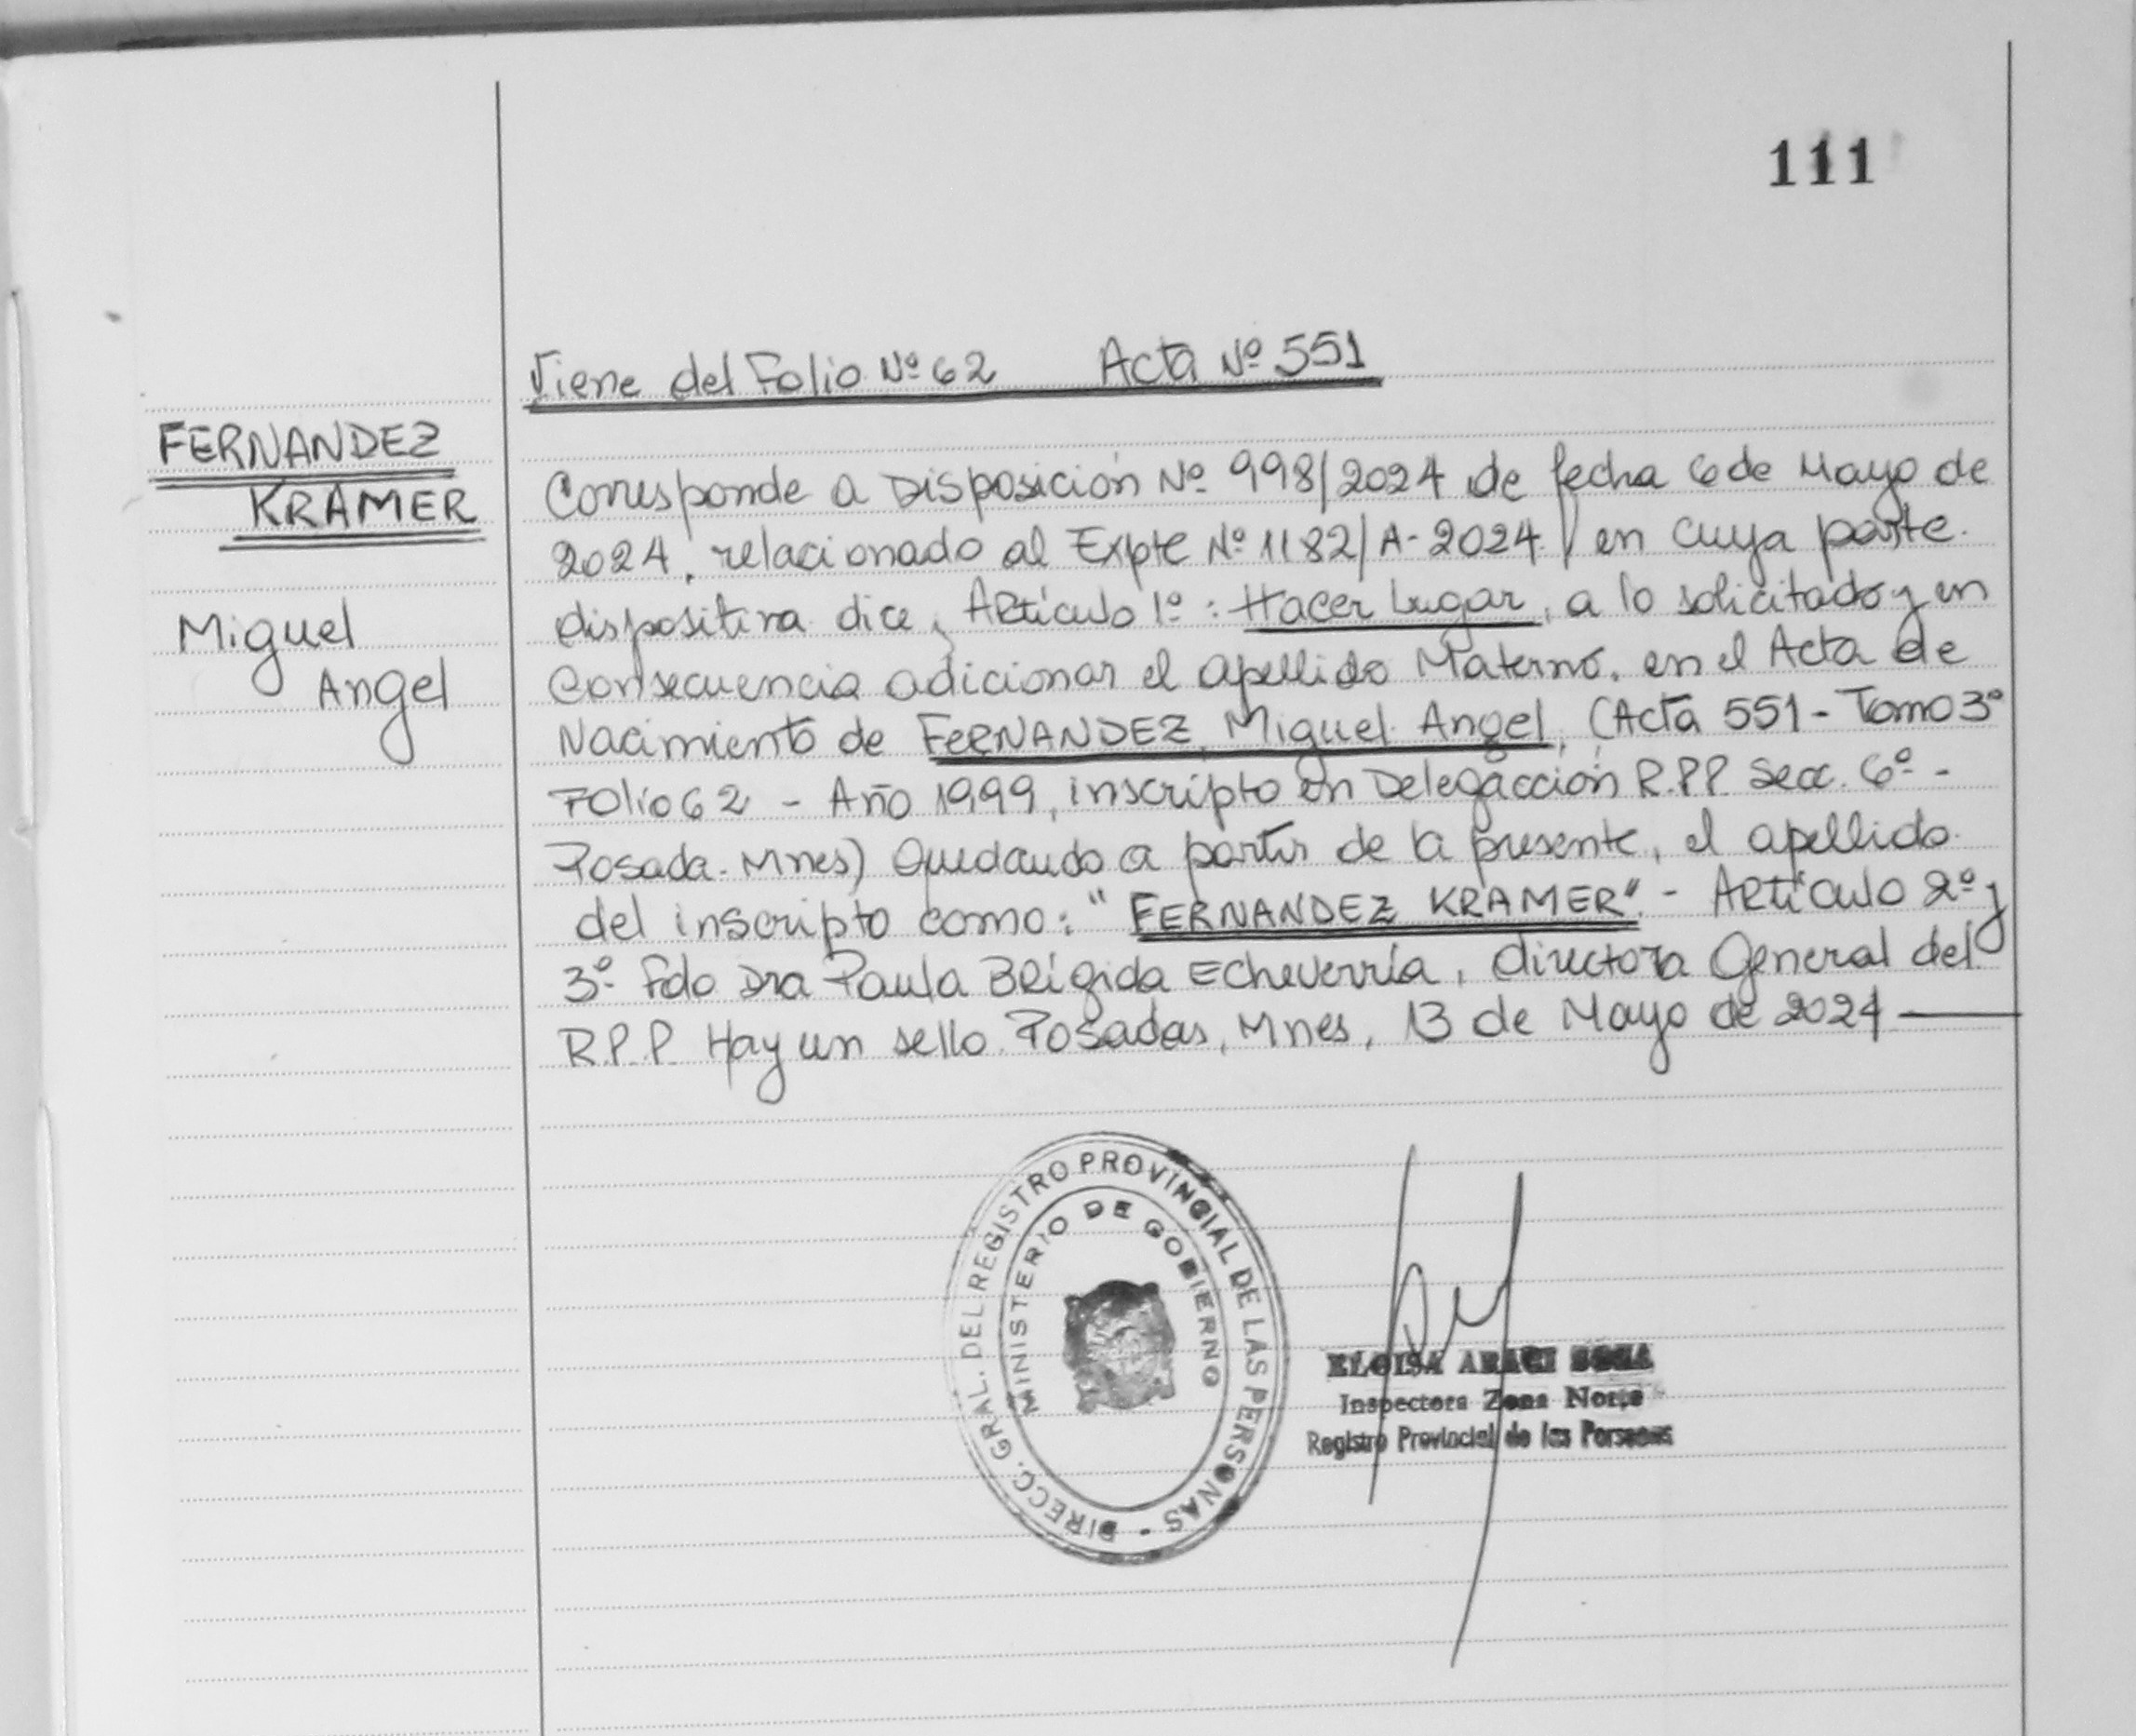 111
Viene del Folio Nº 62 Acta Nº 551
FERNANDEZ
KRAMER
Miguel
Angel
Corresponde a Disposición Nº 998/2024 de fecha 6 de Mayo de
2024, relacionado al Expte Nº 1182/A-2024 / en cuya parte.
dispositiva dice, Artículo 1º: Hacer Lugar, a lo solicitado y en
Consecuencia adicionar el apellido Materno, en el Acta de
Nacimiento de FERNANDEZ, Miguel Angel, (Acta 551 - Tomo 3º
Folio 62 - Año 1999, inscripto en Delegacción R.P.P. Secc. 6º -
Posada. Mnes) Quedando a partir de la presente, el apellido
del inscripto como: "FERNANDEZ KRAMER". - Artículo 2º y
3º Fdo Dra Paula Brígida Echeverría, directora General del
R.P.P. Hay un sello. Posadas, Mnes, 13 de Mayo de 2024
DIRECC. GRAL. DEL REGISTRO PROVINCIAL DE LAS PERSONAS -
MINISTERIO DE GOBIERNO
ELOISA
Inspectora Zona Norte
Registro Provincial de las Personas